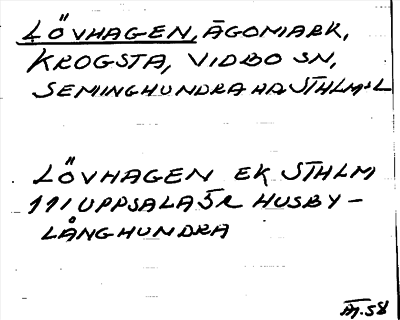 LÖVHAGEN, ÄGOMARK,
KROGSTA, VIDBO SN,
SEMINGHUNDRA HD STHLM:L
LÖVHAGEN EK STHLM
111 UPPSALA 5R HUSBY-
LÅNGHUNDRA